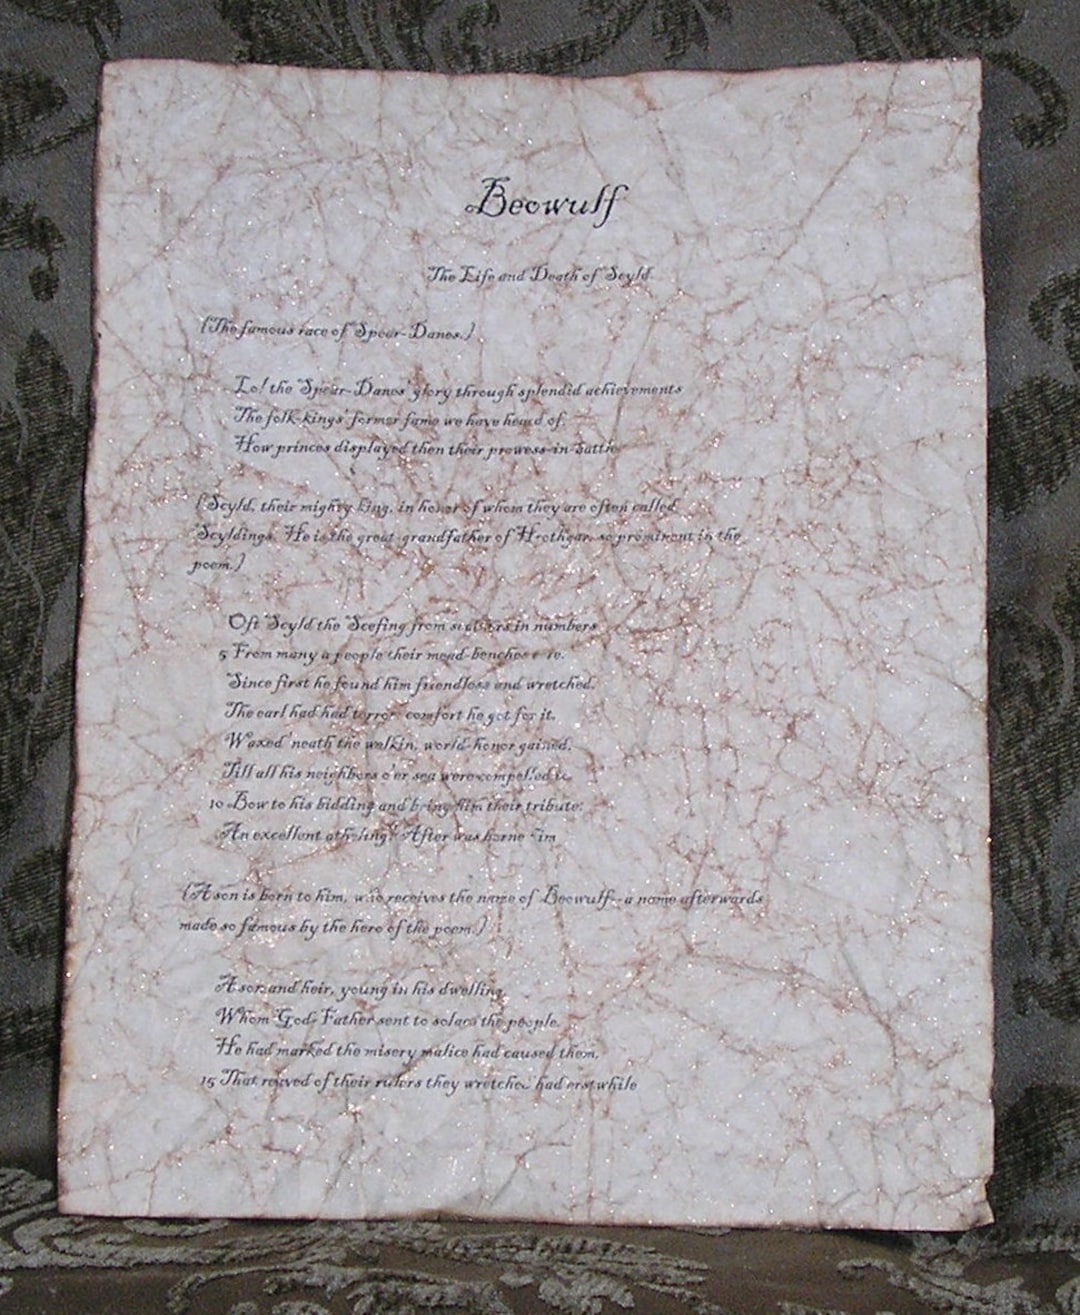 Beowulf
The Life and Death of Scyld
{The famous race of Spear-Danes.}
Lo! the Spear-Danes' glory through splendid achievements
The folk-kings' former fame we have heard of,
How princes displayed then their prowess-in-battle.
{Scyld, their mighty king, in honor of whom they are often called
Scyldings. He is the great-grandfather of Hrothgar, so prominent in the
poem.}
Oft Scyld the Scefing from scathers in numbers
5 From many a people their mead-benches tore.
Since first he found him friendless and wretched,
The earl had had terror: comfort he got for it,
Waxed 'neath the welkin, world-honor gained,
Till all his neighbors o'er sea were compelled to
10 Bow to his bidding and bring him their tribute:
An excellent atheling! After was borne him
{A son is born to him, who receives the name of Beowulf--a name afterwards
made so famous by the hero of the poem.}
A son and heir, young in his dwelling,
Whom God-Father sent to solace the people.
He had marked the misery malice had caused them,
15 That reaved of their rulers they wretched had erstwhile